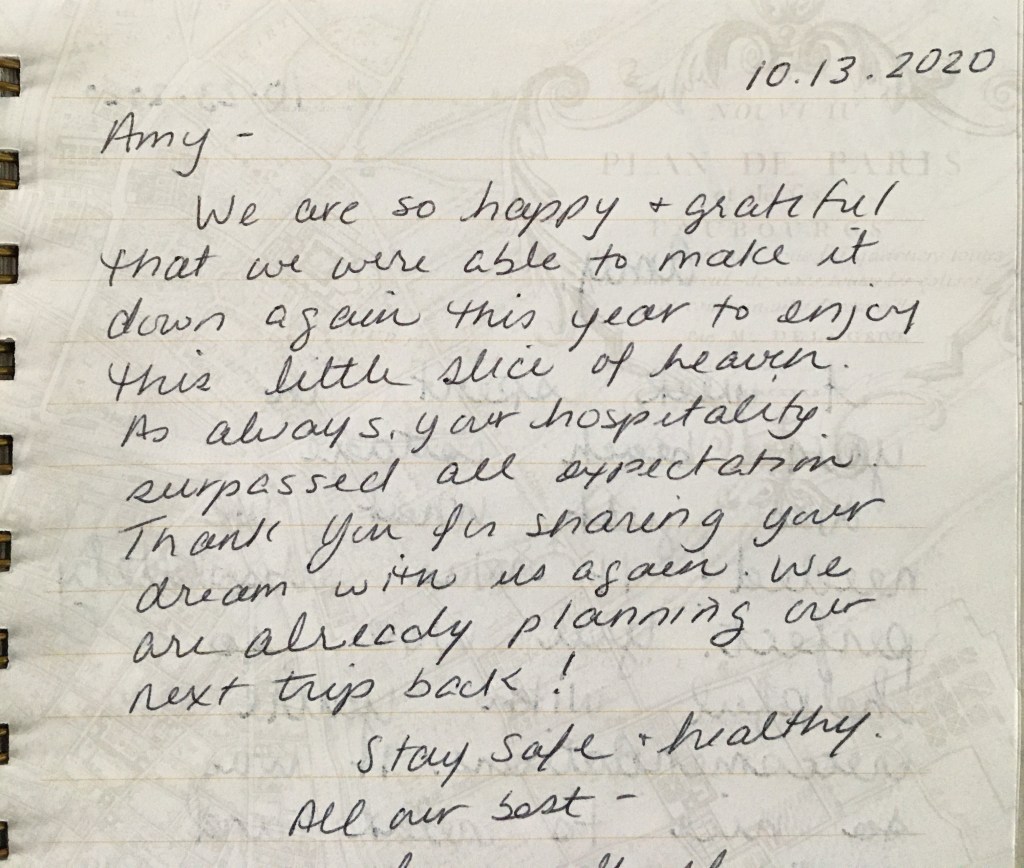 10.13.2020
Amy -
We are so happy + grateful
that we were able to make it
down again this year to enjoy
this little slice of heaven.
As always, your hospitality
surpassed all expectation.
Thank you for sharing your
dream with us again. We
are already planning our
next trip back!
Stay safe + healthy.
All our best -
NOUVEAU
PLAN DE PARIS
FAUBOURGS